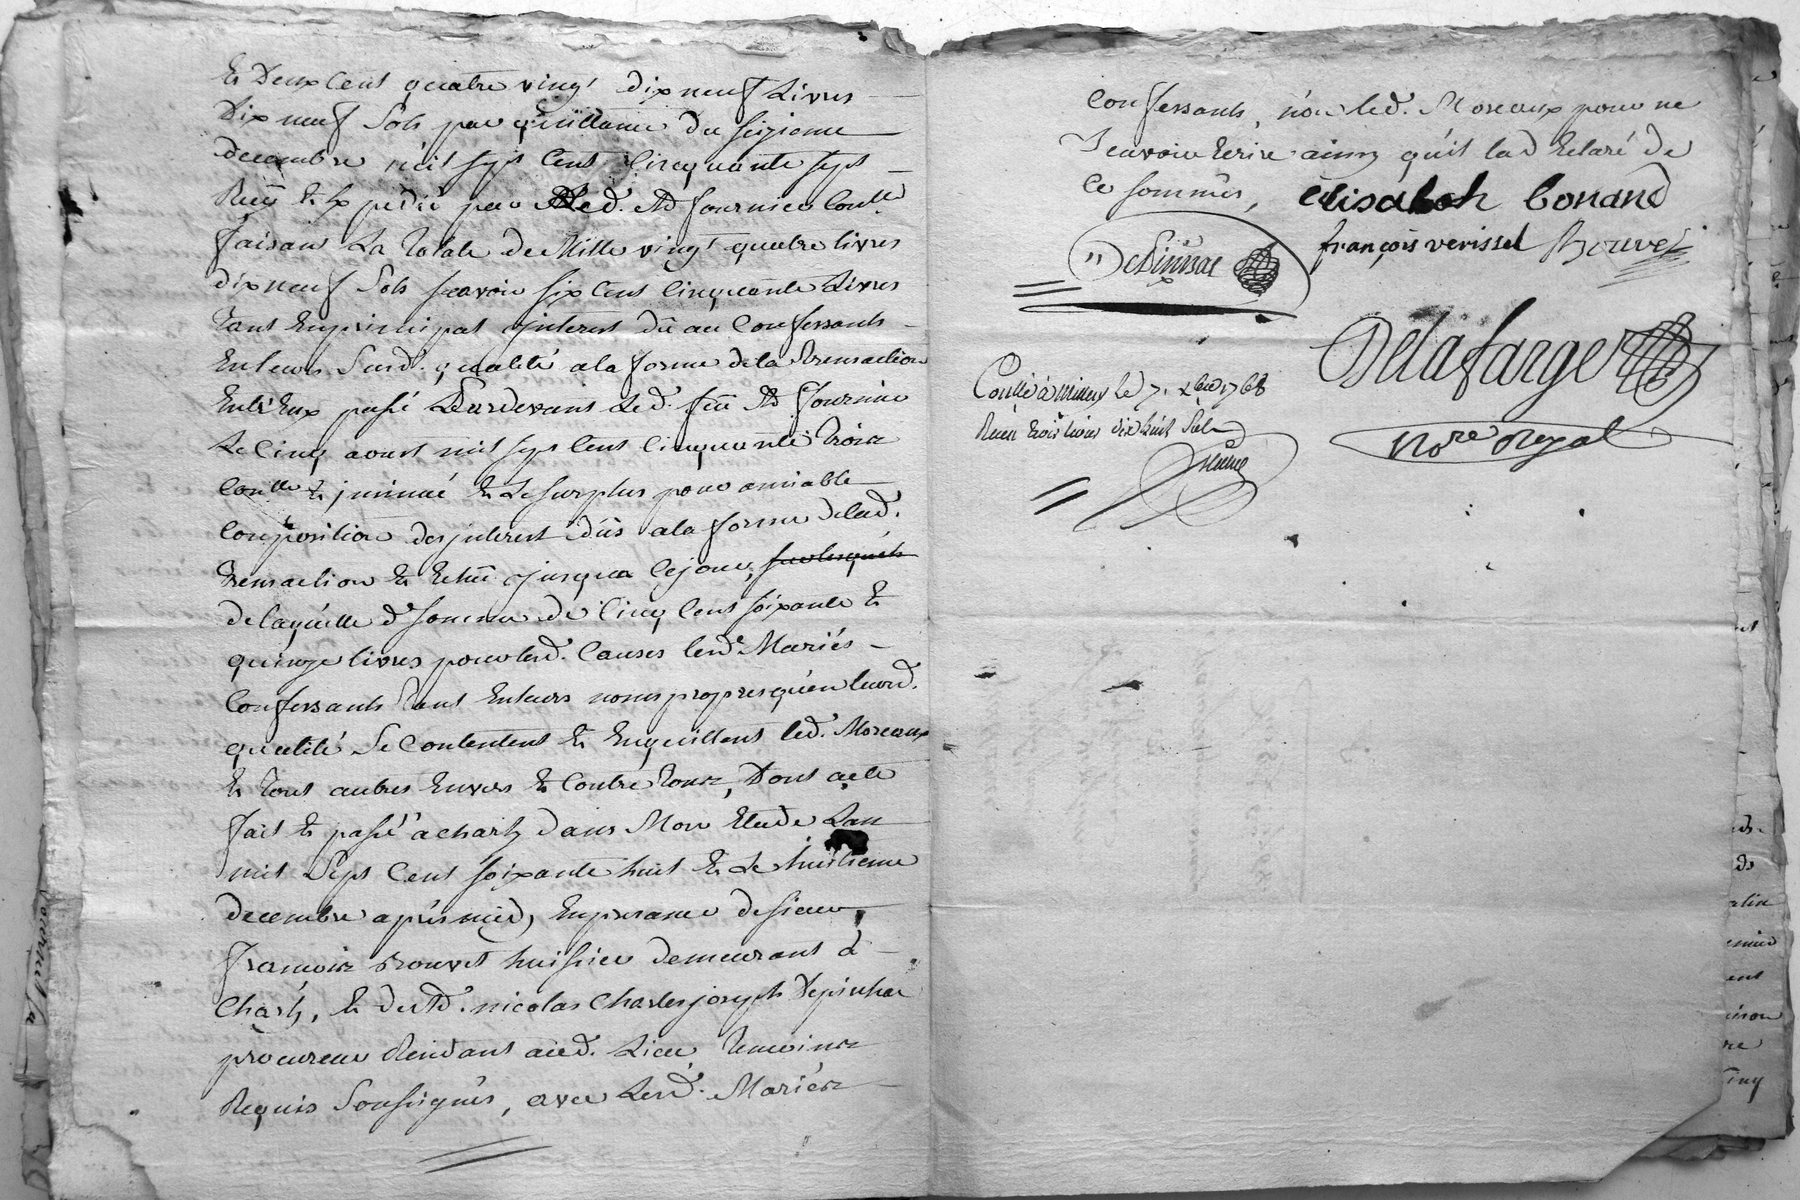 Et Deux Cent quatre vingt dix neuf Livres
Dix neuf Sols par quittance du seizieme
decembre mil sept Cent Cinquante sept
Reçû Et Expedié par Led. Md fournier Conlle
faisan La totale de Mille vingt quatre livres
dix neuf Sols scavoir six Cent Cinquante Livres
tant En principal qu'interest dû au Confessants
En leurs Susd. qualité a la forme de la transaction
Entr'Eux passé Pardevant Led. feû Md fournier
Le Cinq aoust mil sept Cent Cinquante trois
Conlle & insinué Et Le Surplus pour amiable
Composition des jnterest dûs a la forme de lad.
transaction Et Echû jusqua Ce jour, sur lesquels
de laquelle d. somme de Cinq Cent soixante Et
quinze livres pour lesd. Causes lesd. Mariés
Confessants tant En leurs noms propres qu'en leurd.
qualité Se Contentent Et Enquittent led. Moreaux
Et tous autres Envers Et Contre tous, Dont acte
fait Et passé a charly dans Mon Etude Lan
mil Sept Cent soixante huit Et Le huitieme
decembre apres midy, En presance de sieur
francois Bouvet huissier demeurant à
Charly, Et du Md. nicolas Charles joseph Depinhac
procureur Residant aud. Lieu temoins
Requis Soussignés, avec Lesd. Mariés
Confessants, non led. Moreaux pour ne
Scavoir Ecrire ainsy qu'il la d Eclaré de
Ce sommé,
élisabeh bonand
françois verissel Bouvet
Delafarge
Conllé à le 7. xbre 1768
Reçu trois livres dix huit Sols
Nore Royal